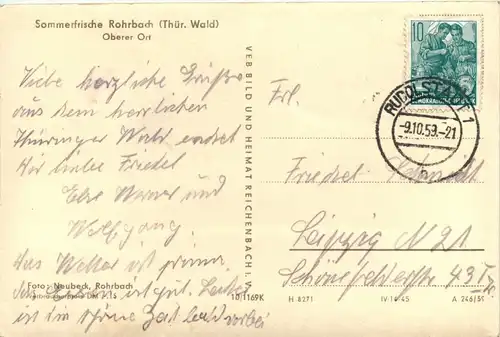 Sommerfrische Rohrbach (Thür. Wald)
Oberer Ort
Viele herzliche Grüße
aus dem herrlichen
Thüringer Wald sendet
Dir liebe Friedel
Else Werner und
Wolfgang.
Das Wetter ist prima,
das Essen ist gut. Leider
ist die schöne Zeit bald vorbei
Foto: Neubeck, Rohrbach
10/1169K
VEB BILD UND HEIMAT REICHENBACH I. V.
10
RUDOLSTADT 1
-9.10.59.-21
Frl.
Friedel Schmidt
Leipzig N 21
Schönefelderstr 43 I
H 8271
IV/14/45
A 246/59